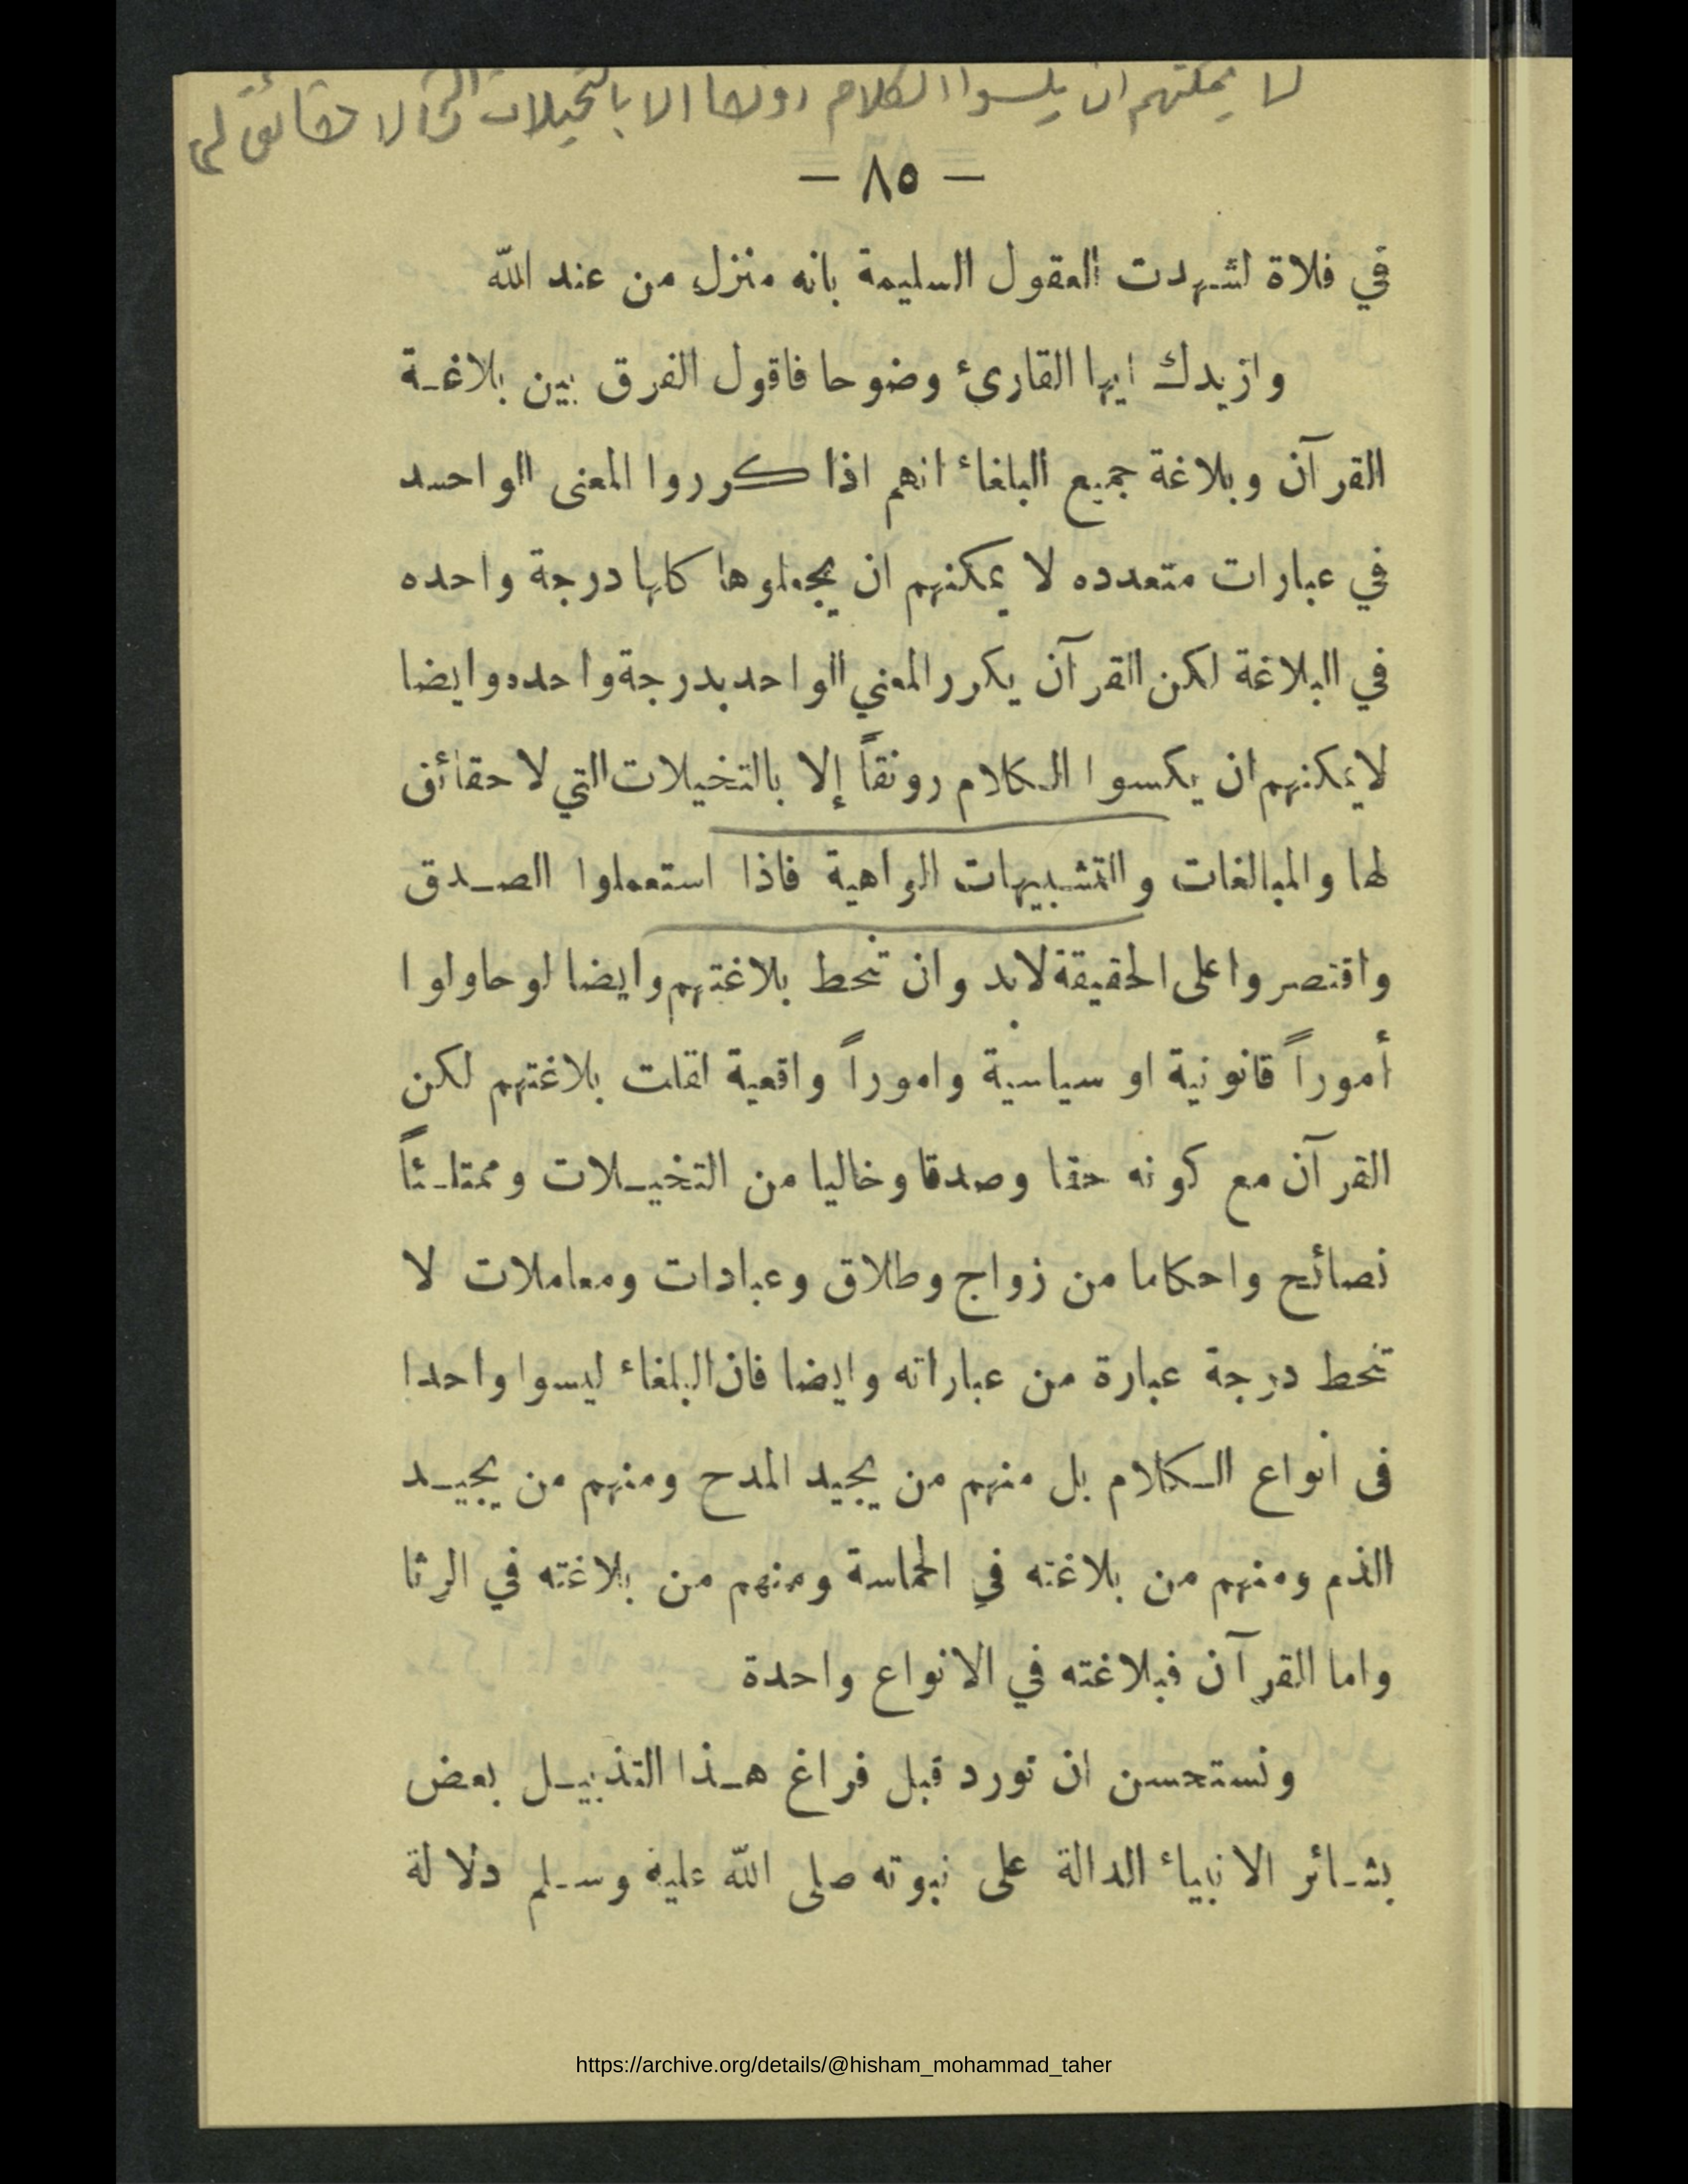 لا يمكنهم ان يكسوا الكلام رونقا الا بالتخيلات التي لا حقائق لها
— ٨٥ —
في فلاة لشهدت العقول السليمة بانه منزل من عند الله
وازيدك ايها القارئ وضوحا فاقول الفرق بين بلاغة
القرآن وبلاغة جميع البلغاء انهم اذا كرروا المعنى الواحد
في عبارات متعدده لا يمكنهم ان يجعلوها كلها درجة واحده
في البلاغة لكن القرآن يكرر المعني الواحد بدرجة واحده وايضا
لا يمكنهم ان يكسوا الكلام رونقاً إلا بالتخيلات التي لا حقائق
لها والمبالغات والتشبيهات الواهية فاذا استعملوا الصدق
واقتصروا على الحقيقة لابد وان تنحط بلاغتهم وايضا لو حاولوا
أموراً قانونية او سياسية واموراً واقعية لقلت بلاغتهم لكن
القرآن مع كونه حقا وصدقا وخاليا من التخيلات وممتلئاً
نصائح واحكاما من زواج وطلاق وعبادات ومعاملات لا
تنحط درجة عبارة من عباراته وايضا فان البلغاء ليسوا واحدا
فى انواع الكلام بل منهم من يجيد المدح ومنهم من يجيد
الذم ومنهم من بلاغته في الحماسة ومنهم من بلاغته في الرثا
واما القرآن فبلاغته في الانواع واحدة
ونستحسن ان نورد قبل فراغ هذا التذييل بعض
بشائر الانبياء الدالة على نبوته صلى الله عليه وسلم دلالة
https://archive.org/details/@hisham_mohammad_taher